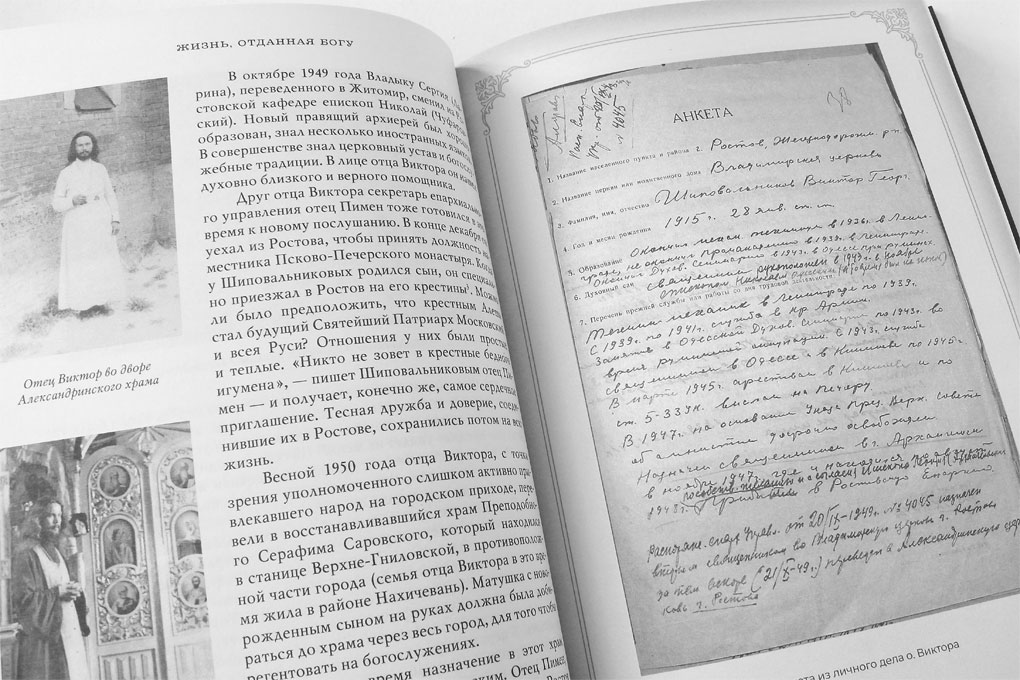 ЖИЗНЬ, ОТДАННАЯ БОГУ
В октябре 1949 года Владыку Сергия (Ла-
рина), переведенного в Житомир, сменил на Ро-
стовской кафедре епископ Николай (Чуфаров-
ский). Новый правящий архиерей был хорошо
образован, знал несколько иностранных языков.
В совершенстве знал церковный устав и богослу-
жебные традиции. В лице отца Виктора он нашел
духовно близкого и верного помощника.
Друг отца Виктора секретарь епархиально-
го управления отец Пимен тоже готовился в это
время к новому послушанию. В конце декабря он
уехал из Ростова, чтобы принять должность на-
местника Псково-Печерского монастыря. Когда
у Шиповальниковых родился сын, он специаль-
но приезжал в Ростов на его крестины
ли было предположить, что крестным
стал будущий Святейший Патриарх Московский
и всея Руси? Отношения у них были простые
и теплые. «Никто не зовет в крестные бедного
игумена», — пишет Шиповальниковым отец Пи-
мен — и получает, конечно же, самое сердечное
приглашение. Тесная дружба и доверие, соеди-
нившие их в Ростове, сохранились потом на всю
жизнь.
Весной 1950 года отца Виктора, с точки
зрения уполномоченного слишком активно при-
влекавшего народ на городском приходе, пере-
вели в восстанавливавшийся храм Преподобно-
го Серафима Саровского, который находился
в станице Верхне-Гниловской, в противополож-
ной части города (семья отца Виктора в это вре-
мя жила в районе Нахичевань). Матушка с ново-
рожденным сыном на руках должна была доби-
раться до храма через весь город, для того чтобы
регентовать на богослужениях.
время назначение в этот храм
Отец Пимен,
Отец Виктор во дворе
Александринского храма
38
№ 4045
АНКЕТА
1. Название населенного пункта и района г. Ростов, Железнодорожн. р-н
2. Название церкви или молитвенного дома Владимирская церковь
3. Фамилия, имя, отчество Шиповальников Виктор Георг.
4. Год и месяц рождения 1915 г. 28 янв. ст. ст.
5. Образование Окончил механ. техникум в 1936 г. в Ленин-
граде, не окончил Промакадемию в 1939 г. в Ленинграде.
Окончил Духов. Семинарию в 1943 г. в Одессе при румынах.
6. Духовный сан священник рукоположен в 1943 г. в ноябре
епископом Николаем
7. Перечень прежней службы или работы со дня трудовой деятельности
Техник механик в Ленинграде по 1939 г.
С 1939 г. по 1941 г. служба в кр. Армии.
Занятия в Одесской Духов. Семинарии по 1943 г. во
время румынской оккупации. С 1943 г. служба
священником в Одессе и в Кишиневе по 1945 г.
В марте 1945 г. арестован в Кишиневе и по
ст. 5-33 УК. выслан на Печору.
В 1947 г. на основании Указа През. Верх. совета
об амнистии досрочно освобожден
Назначен священником в г. Архангельск
в ноябре 1947 г. где и находился по
1948 г. Прибыл в Ростовскую Епархию.
от 20/IX-1949 г. № 4045 назначен
вторым священником во Владимирскую церковь г. Ростова
затем вскоре (21/X-49 г.) переведен в Александринскую цер-
ковь г. Ростова
из личного дела о. Виктора